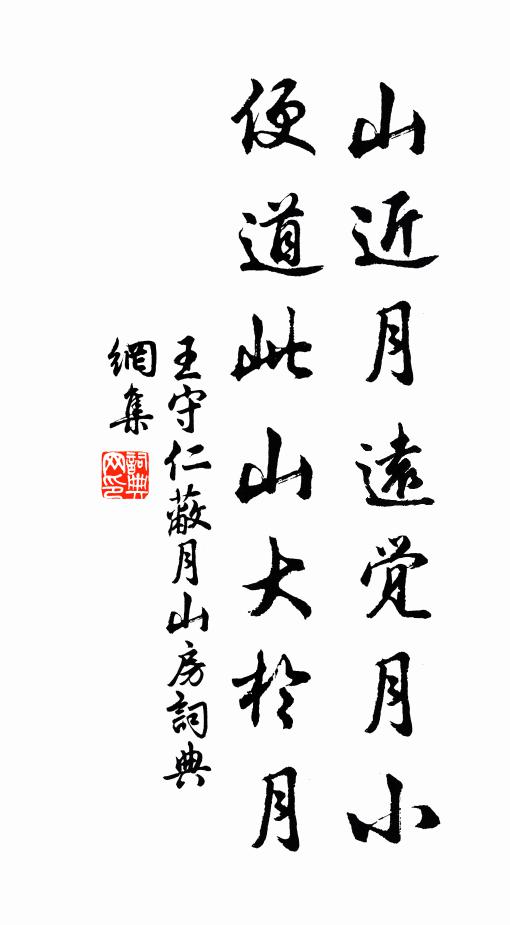 山近月遠觉月小
便道此山大於月
王守仁蔽月山房詞典
網集
詞典网印